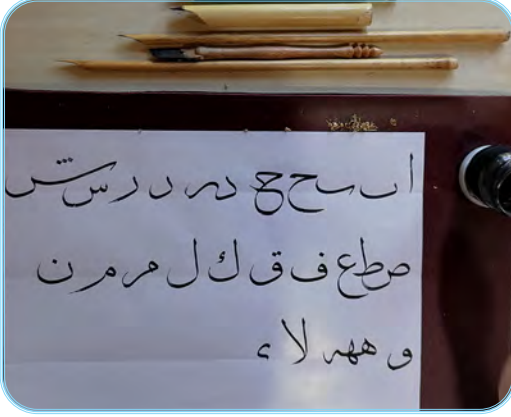 ا ں ح در د ر س
ص ط ع ف ق ك ل م م ن
و هه لا ء